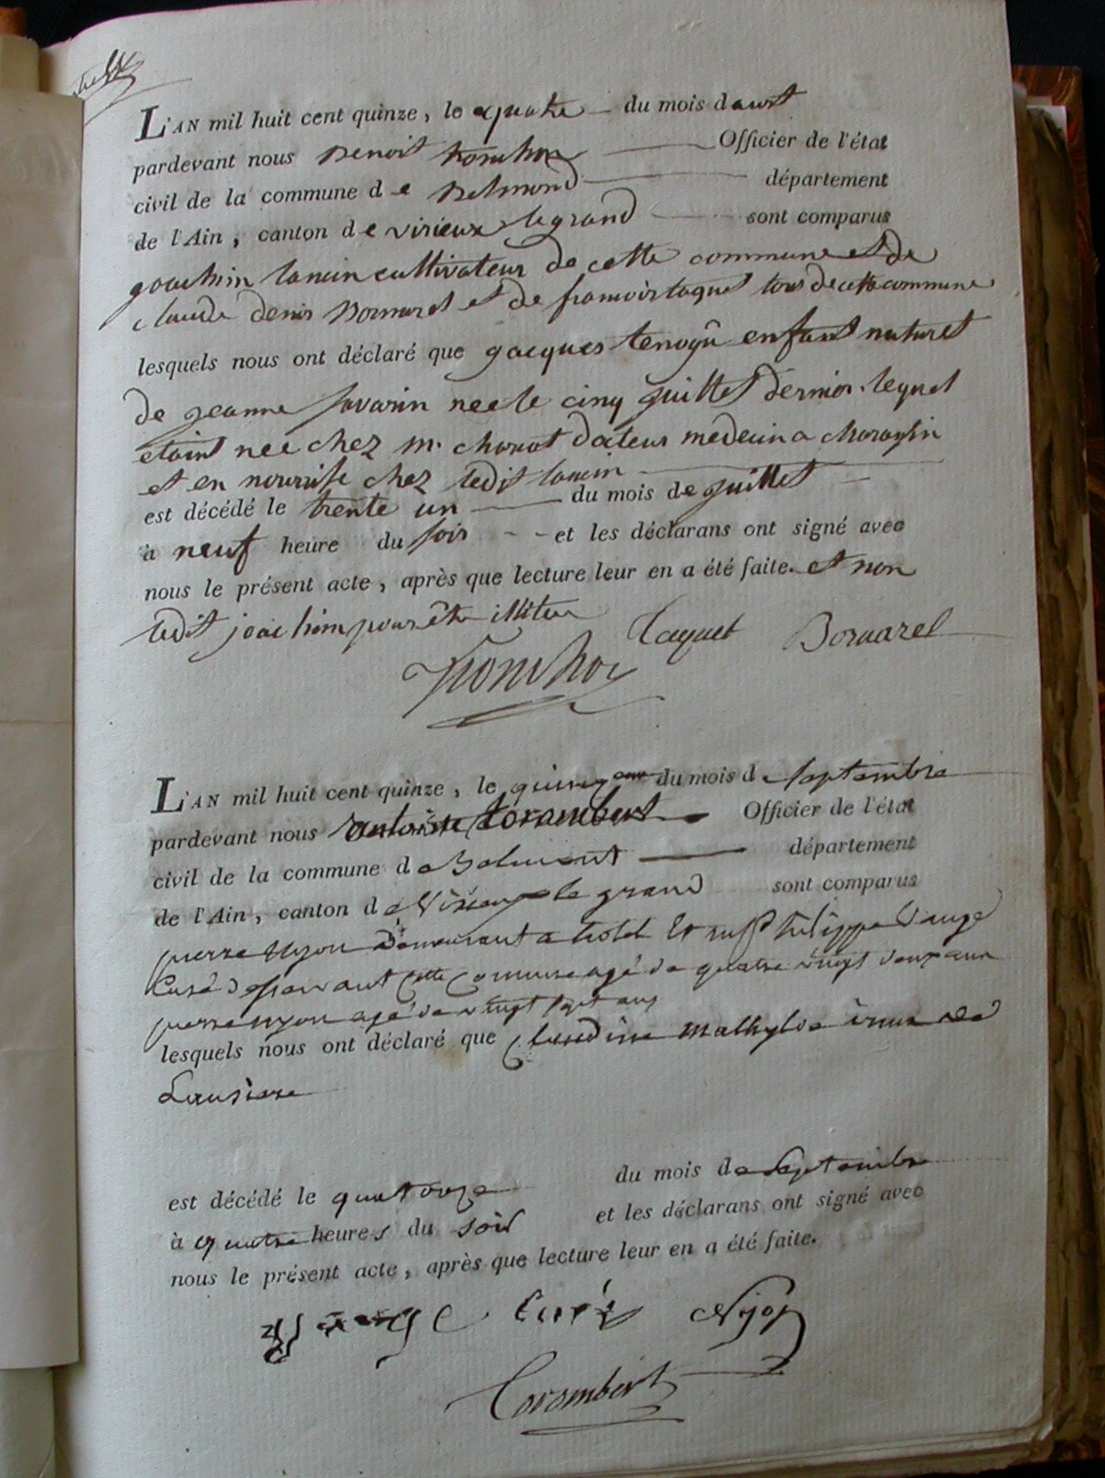 L'AN mil huit cent quinze, le quatre du mois daust
pardevant nous Benoit tronchon Officier de l'état
civil de la commune de Belmond département
de l'Ain, canton de virieux legrand sont comparus
joachim lancin cultivateur de cette commune et de
claude denis Bornarel et de francois taquet tous de cette commune
lesquels nous ont déclaré que jacques enfant naturel
de jeanne savarin nee le cinq juillet dernier lequel
etoint nee chez m. docteur medecin a
et en nourisse chez ledit lancin
est décédé le trente un du mois de juillet
à neuf heure du soir et les déclarans ont signé avec
nous le présent acte, après que lecture leur en a été faite. et non
ledit joachim pour être
Taquet Bornarel
L'AN mil huit cent quinze, le du mois de septembre
pardevant nous antoine Corambert Officier de l'état
civil de la commune de Belmont département
de l'Ain, canton de Virieux le grand sont comparus
pierre nyon Demeurant a et philippe
Curé de cette Comune agé de quatre vingt deux ans
pierre nyon agé de vingt sept ans
lesquels nous ont déclaré que Claudine
est décédé le quatorze du mois de Septembre
à quatre heures du soir et les déclarans ont signé avec
nous le présent acte, après que lecture leur en a été faite.
Curé Nyon
Corambert